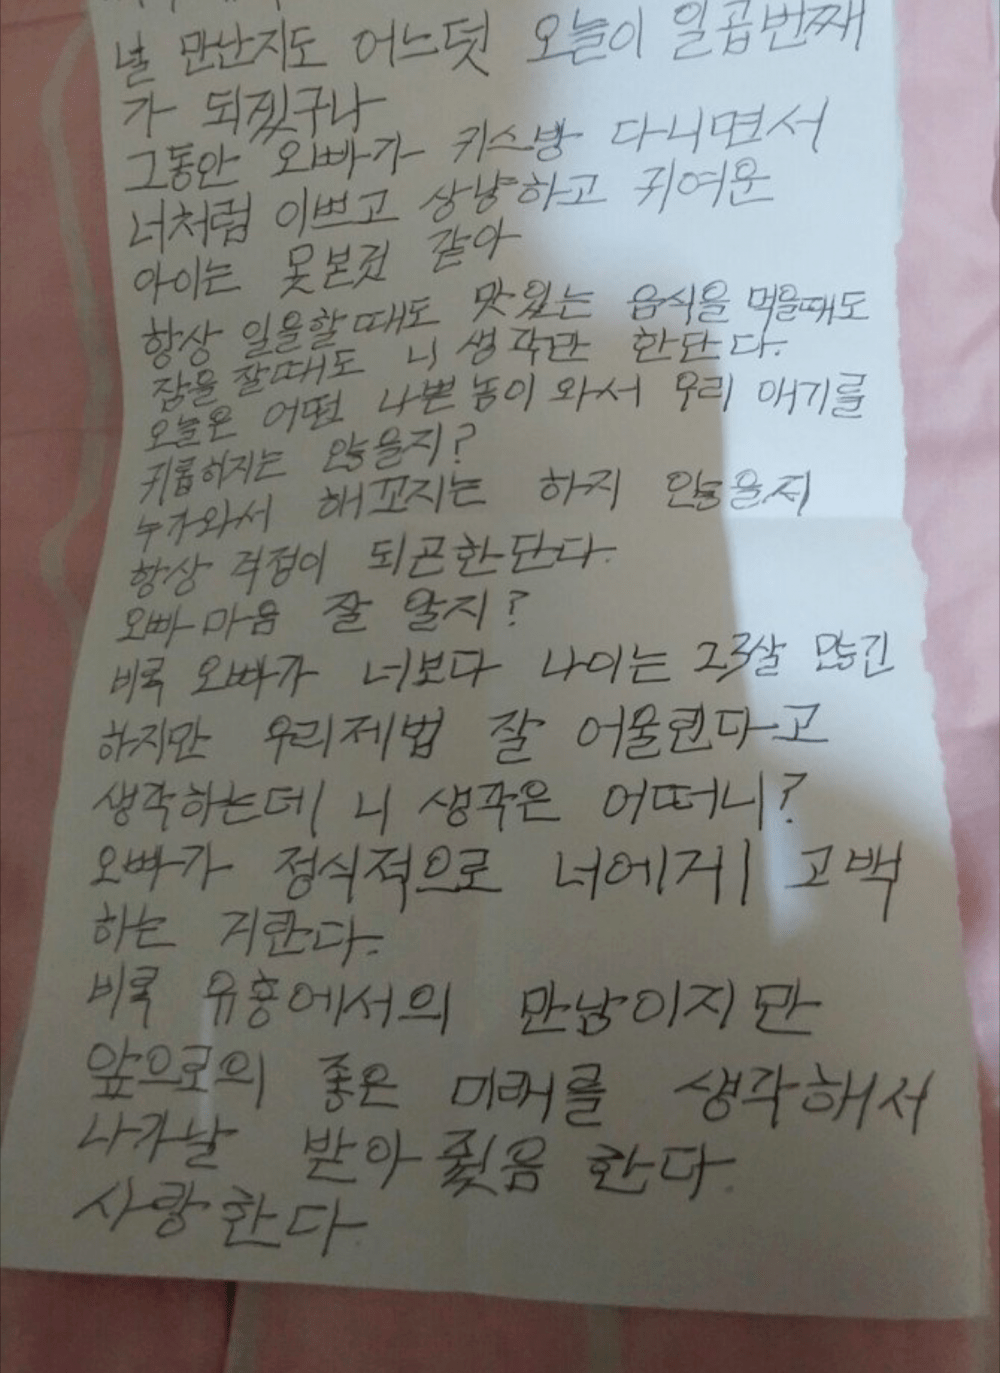 널 만난지도 어느덧 오늘이 일곱번째
가 되겠구나
그동안 오빠가 키스방 다니면서
너처럼 이쁘고 상냥하고 귀여운
아이는 못본것 같아
항상 일을할때도 맛있는 음식을 먹을때도
잠을 잘때도 니 생각만 한단다.
오늘은 어떤 나쁜놈이 와서 우리 애기를
귀롭히지는 않을지?
누가와서 해꼬지는 하지 않을지
항상 걱정이 되곤한단다.
오빠 마음 잘 알지?
비록 오빠가 너보다 나이는 23살 많긴
하지만 우리제법 잘 어울린다고
생각하는데 니 생각은 어떠니?
오빠가 정식적으로 너에게 고백
하는 거란다.
비록 유흥에서의 만남이지만
앞으로의 좋은 미래를 생각해서
나가날 받아줬음 한다.
사랑한다